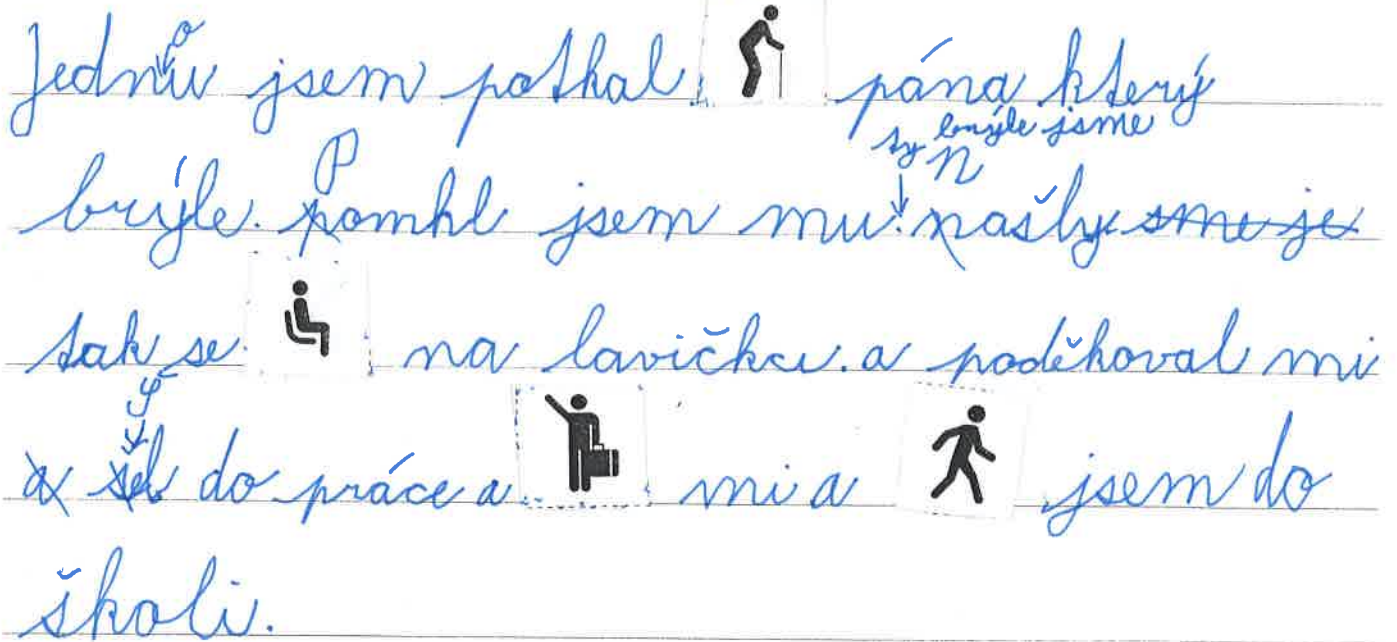 Jednou jsem potkal pána který
ty brýle jsme
brýle. Pomhl jsem mu. Našly sme je
tak se na lavičku. a poděkoval mi
a šel do práce a mi a jsem do
školi.